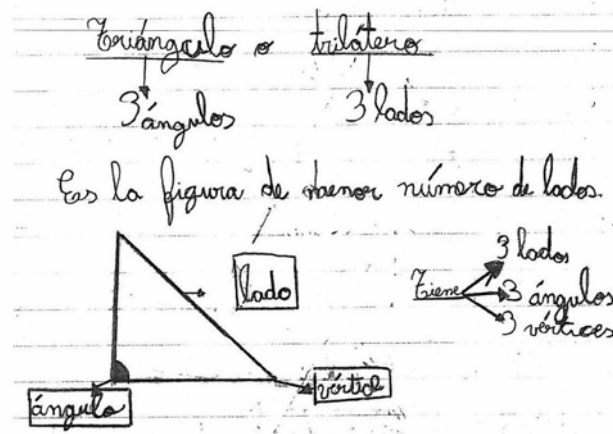 Triángulo o trilátero
3 ángulos 3 lados
Es la figura de menor número de lados.
lado
Tiene
3 lados
3 ángulos
3 vértices
ángulo
vértice